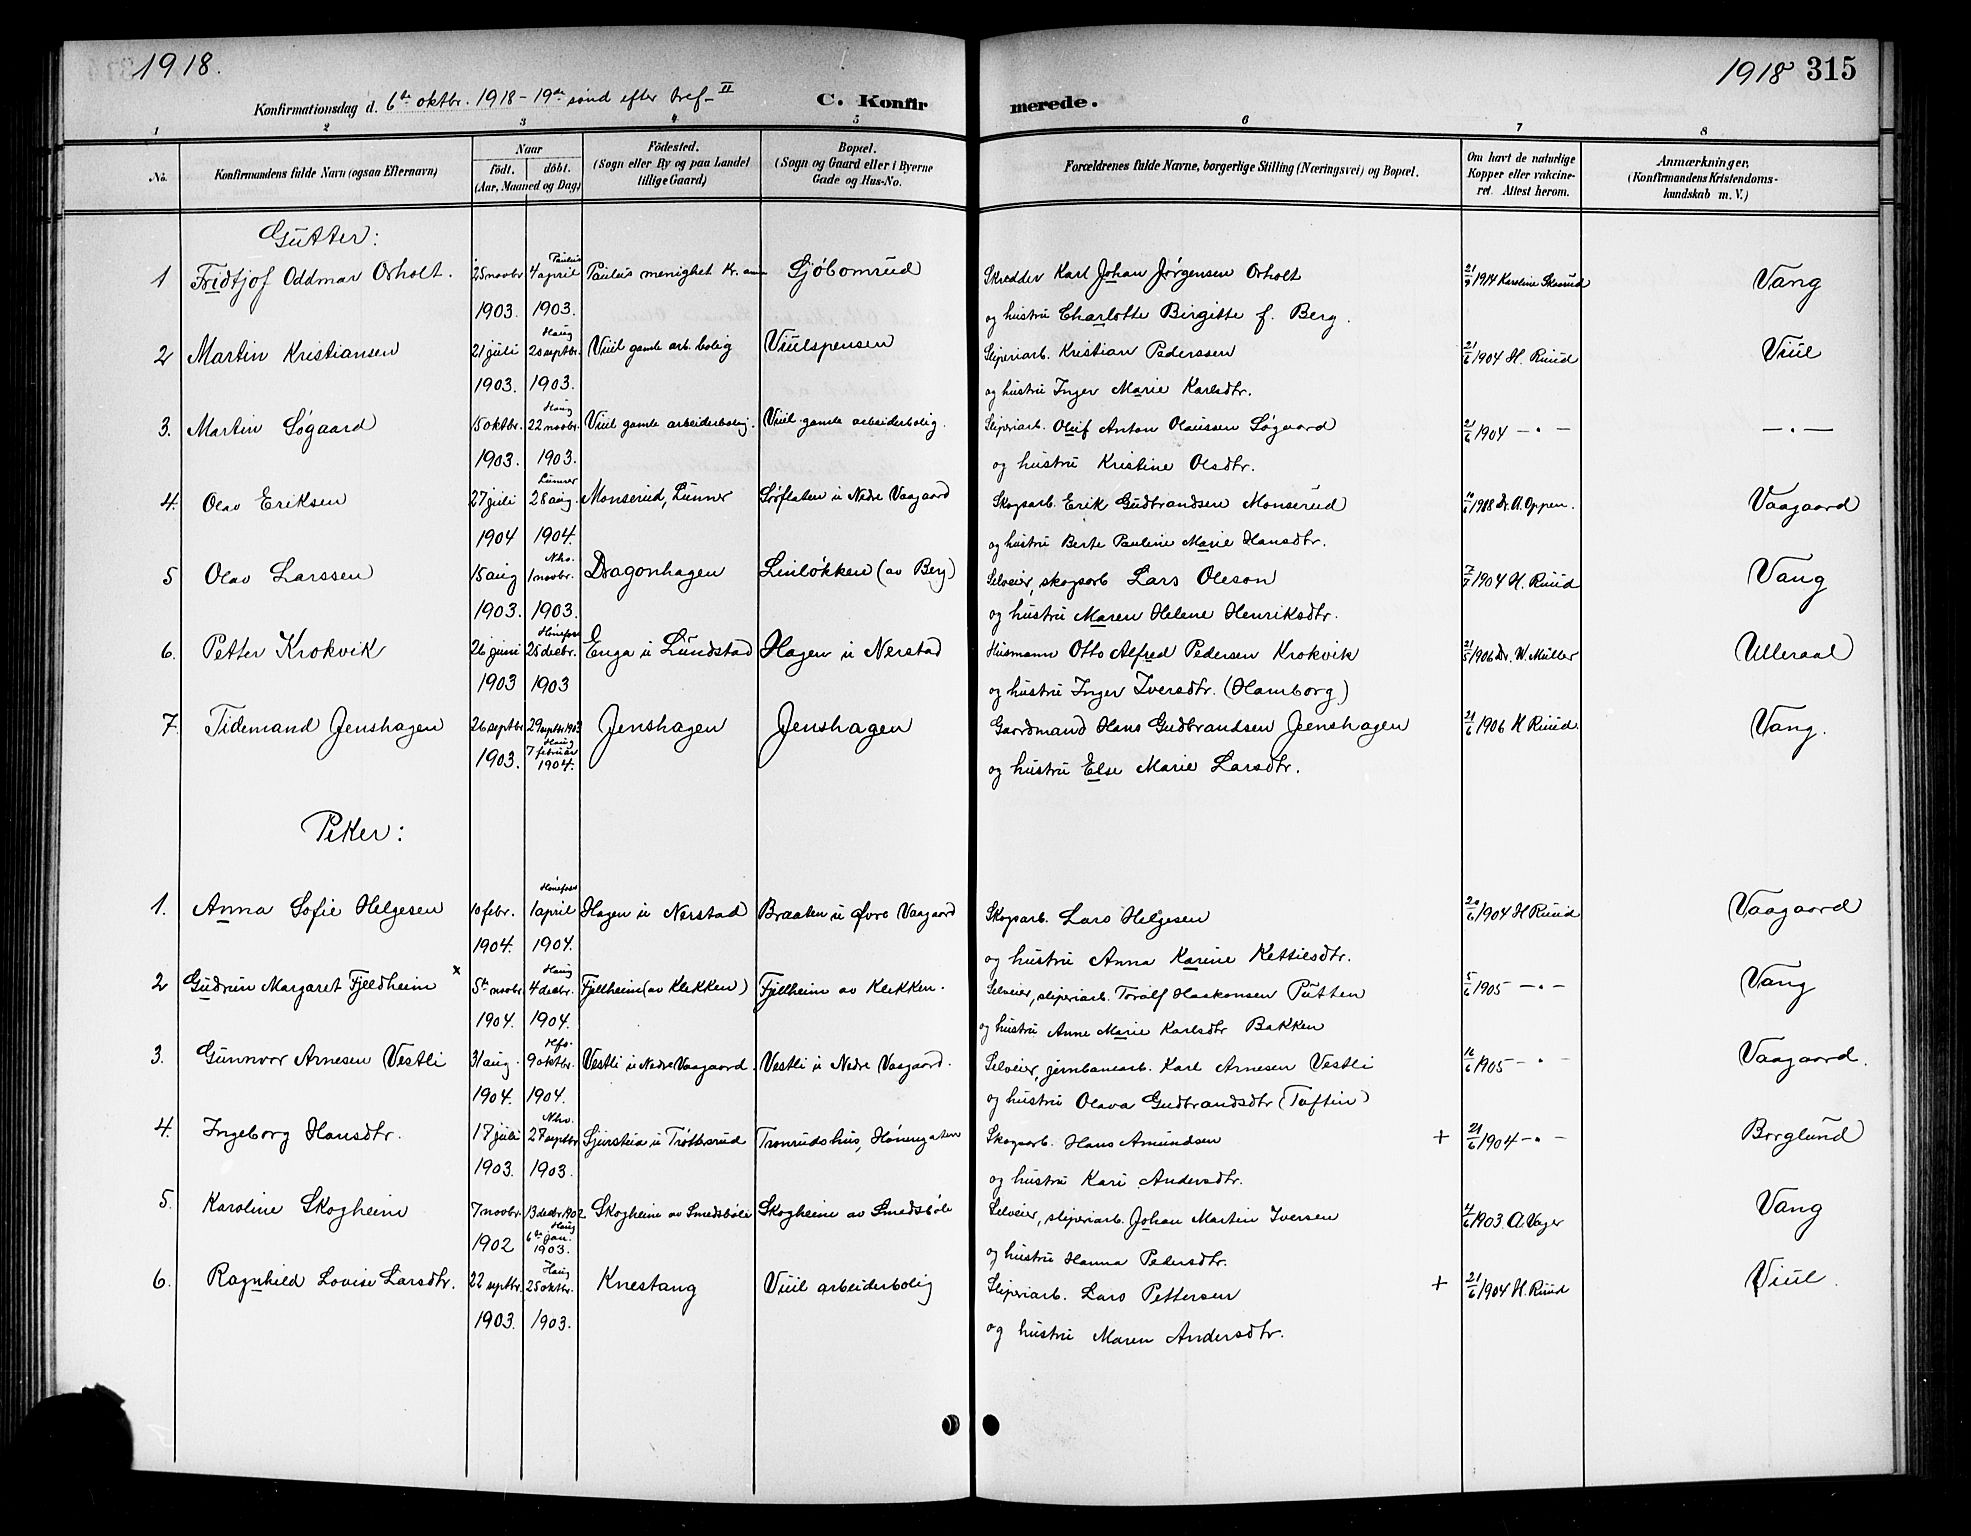 1918.
1918 315
Konfirmationsdag d. 6te oktbr. 1918 - 19de sønd efter tref - II
C. Konfirmerede.
1 2 3 4 5 6 7 8
No. Konfirmandens fulde Navn (ogsaa Efternavn) Naar födt. döbt. (Aar, Maaned og Dag) Födested. (Sogn eller By og paa Landet tillige Gaard) Bopæl. (Sogn og Gaard eller i Byerne Gade og Hus-No. Forældrenes fulde Navne, borgerlige Stilling (Næringsvei) og Bopæl. Om havt de naturlige Kopper eller vakcineret. Attest herom. Anmærkninger, (Konfirmandens Kristendomskundskab m. V.)
Gutter:
1 Fridtjof Oddmar Orholt. 25 novbr 1903. Paulus 4 april 1903. Paulus menighet Kr.ania Sjöbomrud Skredder Karl Johan Jørgensen Orholt 21/9 1914 Karoline Skasrud Vang
og hustru Charlotte Birgitte f. Berg.
2 Martin Kristiansen 21 juli 1903. Haug 20 septbr. 1903. Viul gamle arb. bolig Viulspensen Sliperiarb. Kristian Pederssen 21/6 1904 H. Ruud Viul
og hustru Inger Marie Karlsdtr.
3. Martin Søgaard 15 oktbr. 1903. Haug 22 novbr. 1903. Viul gamle arbeiderbolig. Viul gamle arbeiderbolig. Sliperiarb. Oluf Anton Olaussen Søgaard 21/6 1904 - " - - " -
og hustru Kristine Olsdtr.
4. Olav Eriksen 27 juli 1904 Lunner 28 aug. 1904. Monserud, Lunner Sørflaten u Nedre Vaagaard Skogsarb. Erik Gudbrandsen Monserud 10/6 1908 Dr. A. Oppen. Vaagaard
og hustru Berte Pauline Marie Hansdtr.
5 Olav Larssen 15 aug 1903. Nho. 1 novbr. 1903. Dragonhagen Linløkken (av Berg) Selveier, skogsarb Lars Oleson 7/7 1904 H. Ruud Vang
og hustru Maren Helene Henriksdtr.
6. Petter Krokvik 26 juni 1903 Hønefoss 25 decbr. 1903 Enga u Lundstad Hagen u Nerstad Husmann Otto Alfred Pedersen Krokvik 31/5 1906 Dr. W. Müller Ulleraal
og hustru Inger Iversdtr. (Hamborg)
7. Tidemand Jenshagen 26 septbr 1903. 29 septbr 1903 Haug 7 februar 1904. Jenshagen Jenshagen Gaardmand Hans Gudbrandsen Jenshagen 21/6 1906 H Ruud. Vang.
og hustru Else Marie Larsdtr.
Piker:
1. Anna Sofie Helgesen 10 febr. 1904. Hønefoss 1 april 1904. Hagen u Nerstad Braaten u Øvre Vaagaard Skogsarb. Lars Helgesen 20/6 1904 H Ruud Vaagaard
og hustru Anna Karine Kettilsdtr.
2 Gudrun Margaret Fjeldheim x 5te novbr 1904. Haug 4 decbr. 1904. Fjellheim (av Klekken) Fjellheim av Klekken. Selveier, sliperiarb. Toralf Haakonsen Putten 5/6 1905 - " - Vang
og hustru Anne Marie Karlsdtr Bakken
3. Gunnvor Arnesen Vestli 31 aug. 1904. Hfs. 9 oktbr. 1904. Vestli u Nedre Vaagaard. Vestli u Nedre Vaagaard. Selveier, jernbanearb. Karl Arnesen Vestli 16/6 1905 - " - Vaagaard.
og hustru Olava Gudbrandsdtr (Toftin)
4. Ingeborg Hansdtr. 17 juli 1903. Nho. 27 septbr 1903. Sjurstua u Trøttsrud Tronrudshus, Hønengaten Skogsarb. Hans Amundsen + 21/6 1904 - " - Borglund
og hustru Kari Andersdtr.
5. Karoline Skogheim 7 novbr. 1902 13 decbr 1902 Haug 6te jan. 1903. Skogheim av Smedsbøle Skogheim av Smedsbøle Selveier, sliperiarb. Johan Martin Iversen 4/6 1903. A. Vager Vang
og hustru Hanna Pedersdtr.
6. Ragnhild Lovise Larsdtr. 22 septbr. 1903. Haug 25 oktbr. 1903. Knestang Viul arbeiderbolig Sliperiarb. Lars Pettersen + 21/6 1904 H. Ruud Viul.
og hustru Maren Andersdtr.